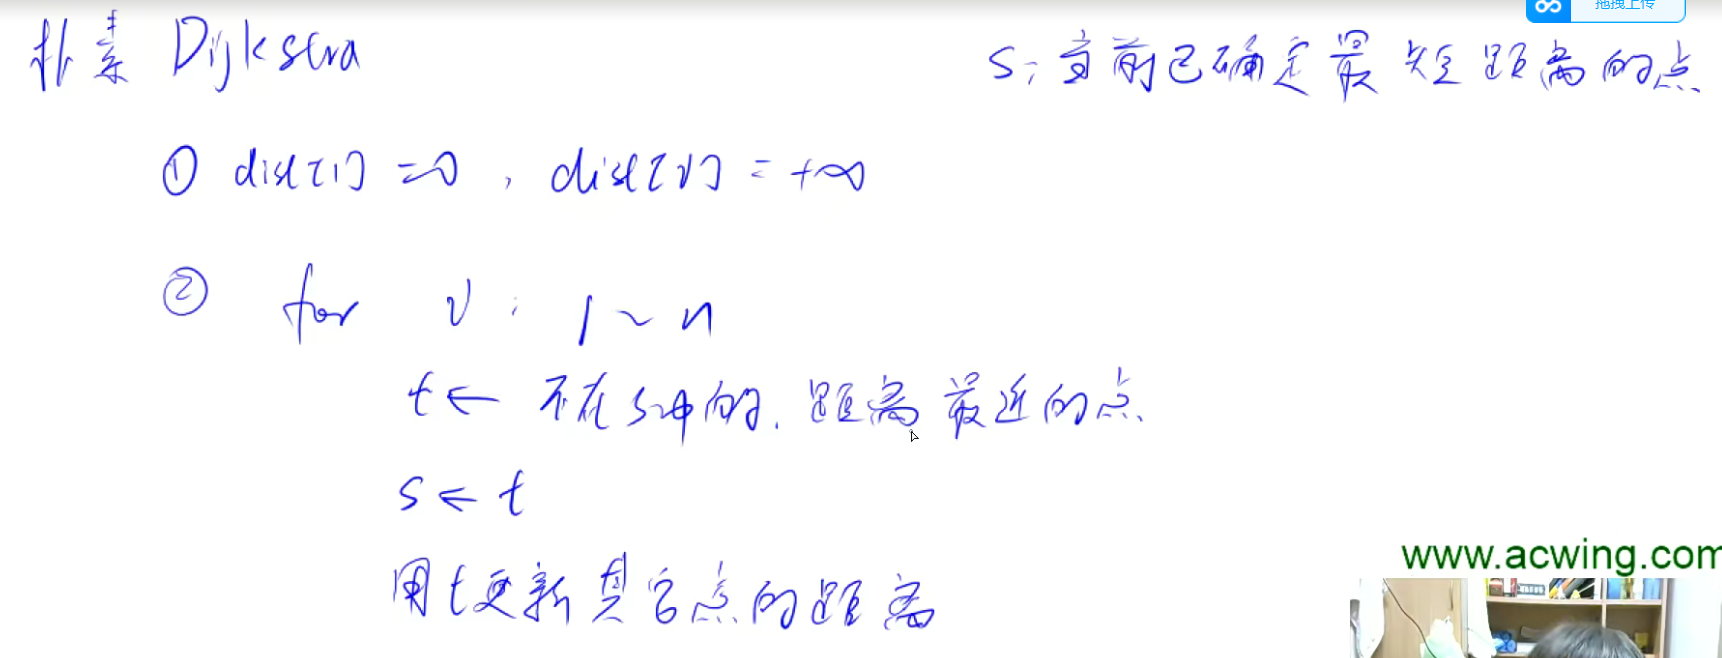 拖拽上传
朴素 Dijkstra
s: 当前已确定最短距离的点
① dist[1]=0, dist[v]=+∞
② for v: 1~n
t← 不在s中的, 距离最近的点
s←t
用t更新其它点的距离
www.acwing.com